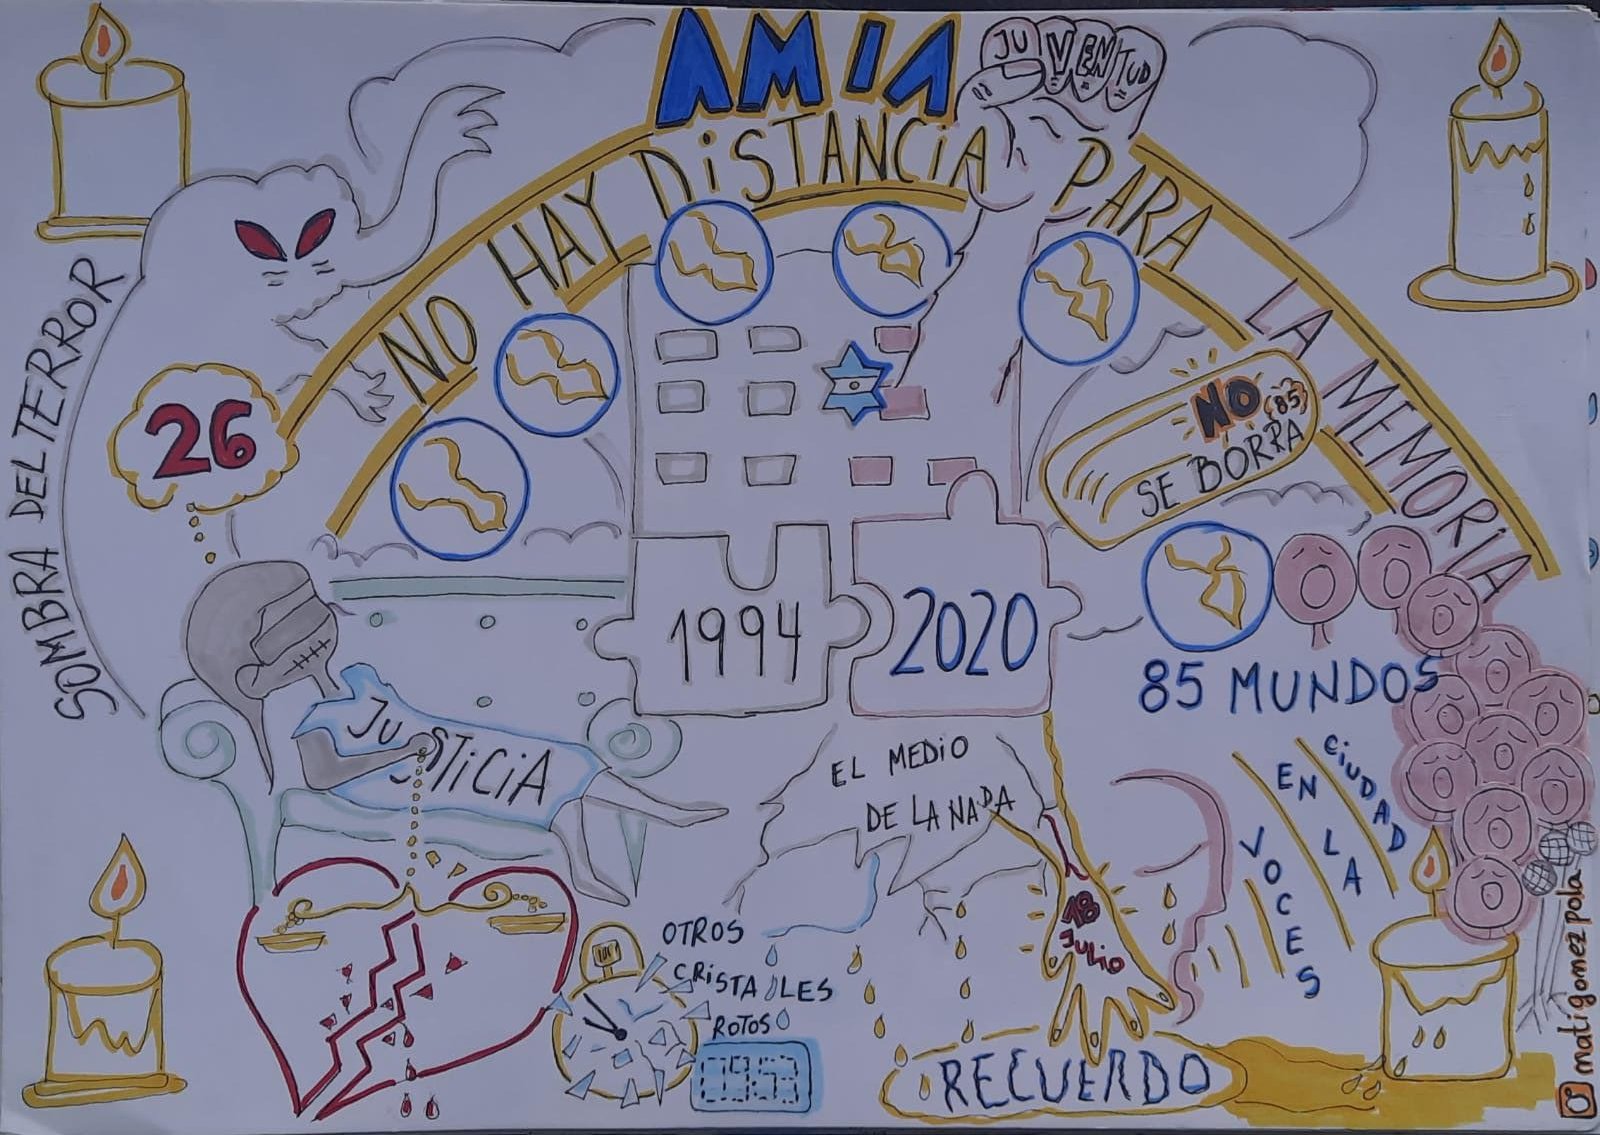 AMIA
JUVENTUD
NO HAY DISTANCIA PARA LA MEMORIA
SOMBRA DEL TERROR
26
NO (85)
SE BORRA
1994
2020
85 MUNDOS
JUSTICIA
EL MEDIO
DE LA NADA
VOCES
EN LA
CIUDAD
18
JULIO
OTROS
CRISTALES
ROTOS
09:53
RECUERDO
matigomezpola